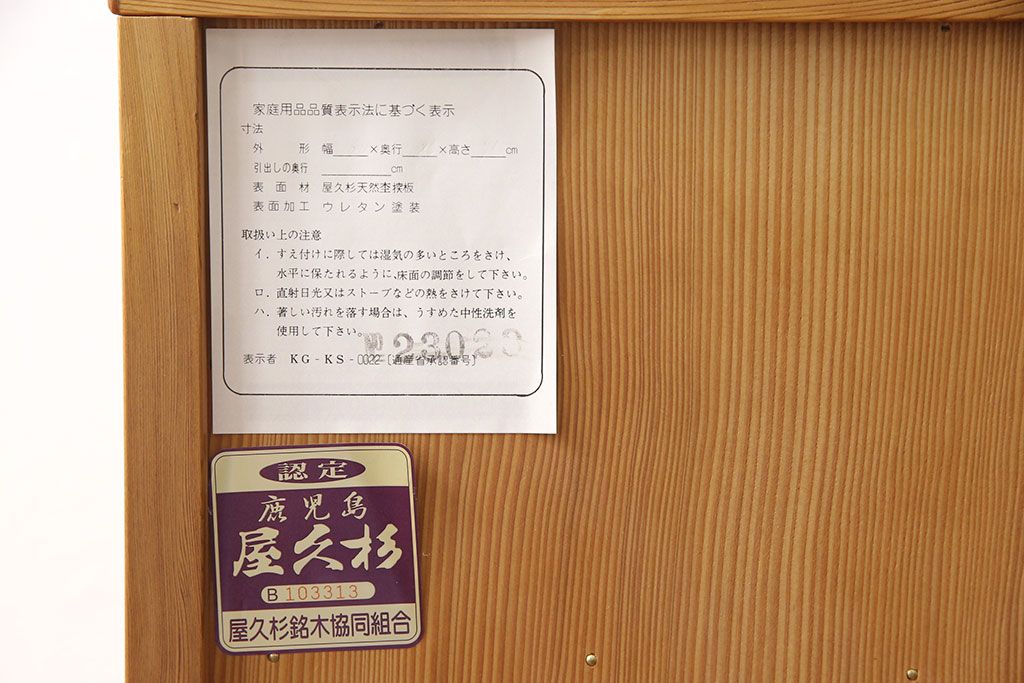 家庭用品品質表示法に基づく表示
寸法
外 形 幅____×奥行____×高さ____cm
引出しの奥行 ________cm
表 面 材 屋久杉天然杢樑板
表面加工 ウレタン塗装
取扱い上の注意
イ. すえ付けに際しては湿気の多いところをさけ、
水平に保たれるように、床面の調節をして下さい。
ロ. 直射日光又はストーブなどの熱をさけて下さい。
ハ. 著しい汚れを落す場合は、うすめた中性洗剤を
使用して下さい。
表示者 KG-KS-0022〔通産省承認番号〕
認定
鹿児島
屋久杉
B 103313
屋久杉銘木協同組合